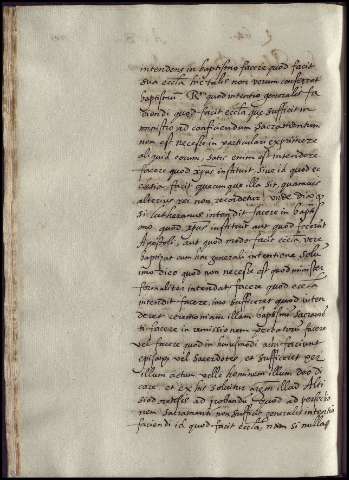 intendens in baptismo facere quod facit
sua eccla hic talis non verum conferret
baptismū Rº quod intentio generalis fa
ciendi quod facit eccla que sufficit in
ministro ad conficiendum sacramentum
non est necesse in particulari exprimere
aliquid eorum, satis enim est intendere
facere quod xpus instituit, sive id quod ec
clesia facit quecumque illa sit, quamvis
alterius rei non recordetur, unde dico q
si lutheranus intendit facere in baptis
mo quod xpus instituit aut quod fecerūt
Apostoli, aut quod modo facit eccla vere
baptizat cum hac generali intentione, solu
imo dico quod non necesse est quod minister
formaliter intendat facere quod eccla
intendit facere, imo sufficeret quod inten
deret ceremoniam illam baptismi sacramē
ti facere in remissionem peccatorum facere
vel facere quod in huiusmodi actu faciunt
episcopi vel sacerdotes et sufficeret per
illum actum velle hominem illum deo di
care, et ex his solvitur argm illud. Aliè
sicut satis ad probandū quod ad perfectio
nem sacramenti non sufficit generalis intentio
faciendi id quod facit eccla, nam si nullas